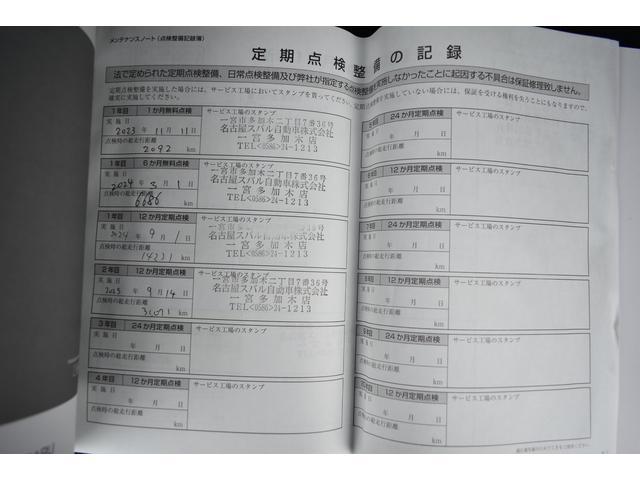 メンテナンスノート(点検整備記録簿)
定期点検整備の記録
法で定められた定期点検整備、日常点検整備及び弊社が指定する点検整備を実施しなかったことに起因する不具合は保証修理致しません。
定期点検整備を実施した場合には、サービス工場においてスタンプを貰ってください。
確実に実施してください。
1年目 1か月無料点検 サービス工場のスタンプ
実施日
2023年11月11日
点検時の総走行距離
2092 km
一宮市多加木二丁目7番36号
名古屋スバル自動車株式会社
一宮多加木店
TEL<0586>24-1213
1年目 6か月無料点検 サービス工場のスタンプ
実施日
2024年3月1日
点検時の総走行距離
6686 km
一宮市多加木二丁目7番36号
名古屋スバル自動車株式会社
一宮多加木店
TEL<0586>24-1213
1年目 12か月定期点検 サービス工場のスタンプ
実施日
2024年9月1日
点検時の総走行距離
14221 km
一宮市多加木二丁目7番36号
名古屋スバル自動車株式会社
一宮多加木店
TEL<0586>24-1213
2年目 12か月定期点検 サービス工場のスタンプ
実施日
2025年9月14日
点検時の総走行距離
km
一宮市多加木二丁目7番36号
名古屋スバル自動車株式会社
一宮多加木店
TEL<0586>24-1213
3年目 24か月定期点検 サービス工場のスタンプ
実施日
年 月 日
点検時の総走行距離
km
4年目 12か月定期点検 サービス工場のスタンプ
実施日
年 月 日
点検時の総走行距離
km
24か月定期点検 サービス工場のスタンプ
年 月 日
点検時の総走行距離
km
12か月定期点検 サービス工場のスタンプ
年 月 日
点検時の総走行距離
km
7年目 24か月定期点検 サービス工場のスタンプ
年 月 日
点検時の総走行距離
km
12か月定期点検 サービス工場のスタンプ
年 月 日
点検時の総走行距離
km
24か月定期点検 サービス工場のスタンプ
年 月 日
点検時の総走行距離
km
12か月定期点検 サービス工場のスタンプ
年 月 日
点検時の総走行距離
km